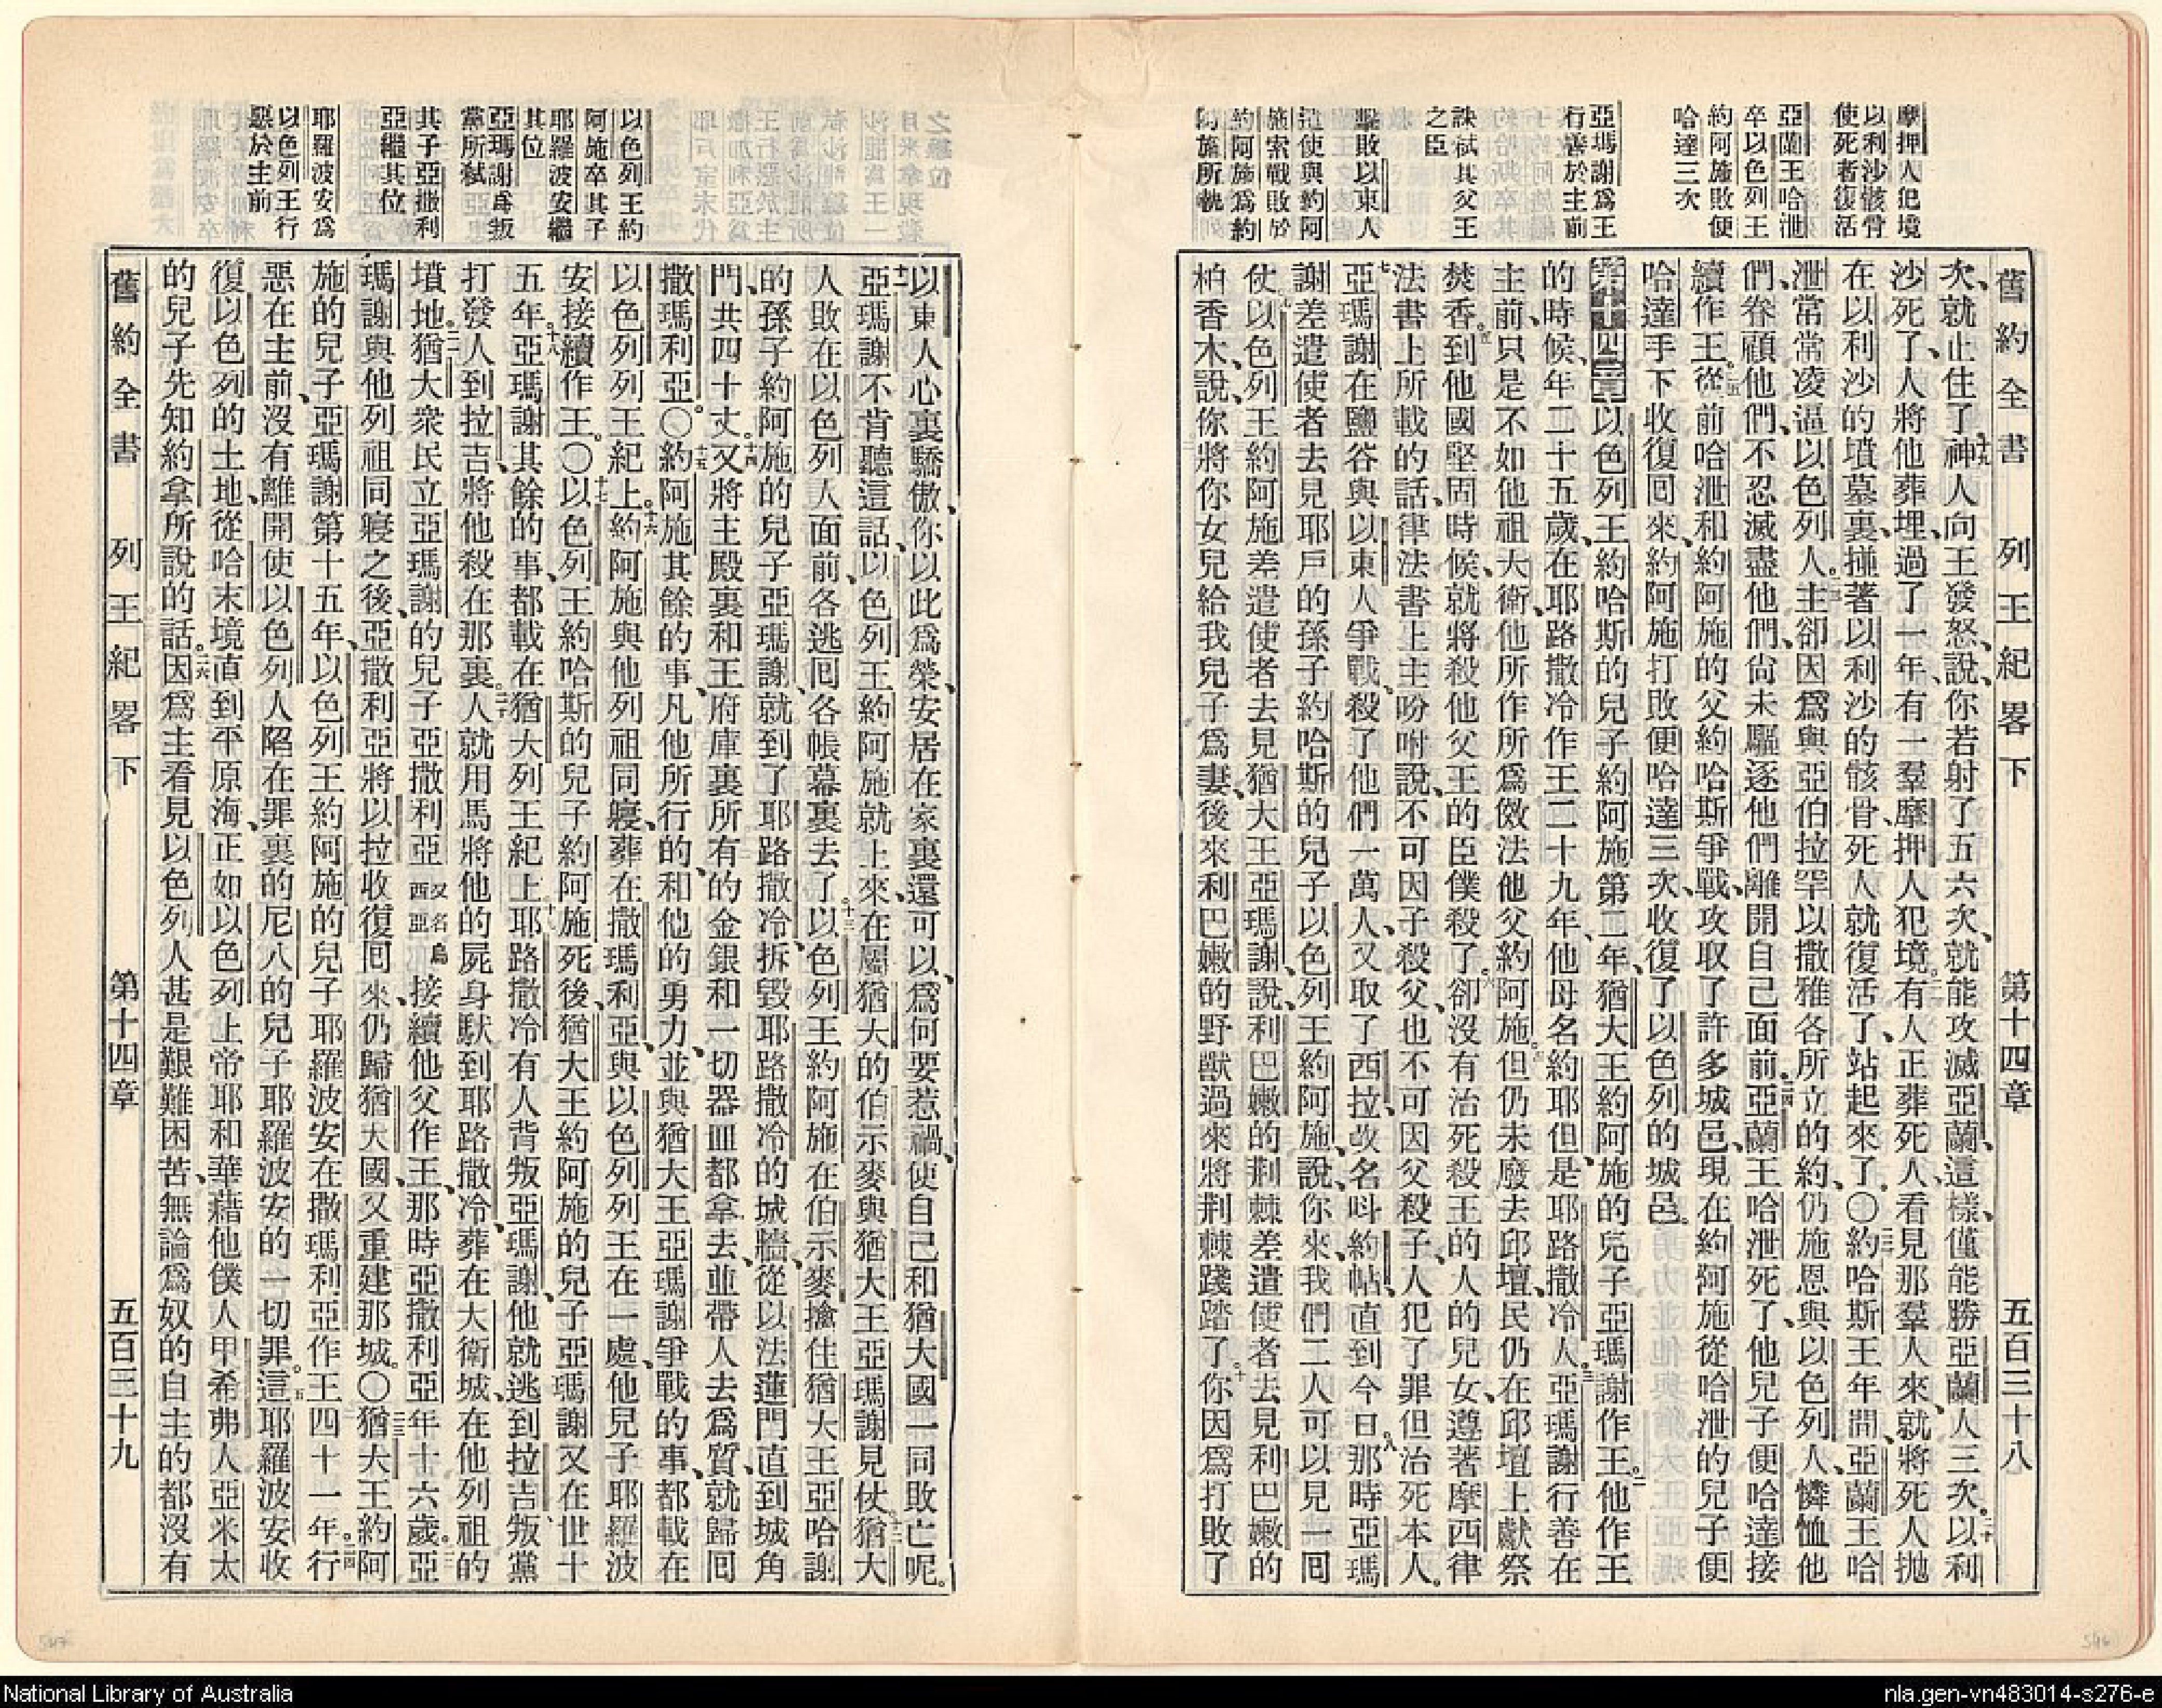 舊約全書 列王紀畧下 第十四章 五百三十八
摩押人犯境
以利沙骸骨
使死者復活
亞蘭王哈泄
卒以色列王
約阿施敗便
哈達三次
亞瑪謝爲王
行善於主前
誅弒其父王
之臣
擊敗以東人
遣使與約阿
施索戰敗於
約阿施爲約
阿施所執
次、就止住了、十九神人向王發怒、說、你若射了五六次、就能攻滅亞蘭、這樣、僅能勝亞蘭人三次。二十以利
沙死了、人將他葬埋、過了一年、有一羣摩押人犯境。二一有人正葬死人、看見那羣人來、就將死人拋
在以利沙的墳墓裏、撞著以利沙的骸骨、死人就復活了、站起來了。〇二二約哈斯王年間、亞蘭王哈
泄常常凌逼以色列人。二三主卻因爲與亞伯拉罕以撒雅各所立的約、仍施恩與以色列人、憐恤他
們、眷顧他們、不忍滅盡他們、尙未驅逐他們離開自己面前。二四亞蘭王哈泄死了、他兒子便哈達接
續作王。二五從前哈泄和約阿施的父約哈斯爭戰、攻取了許多城邑、現在約阿施從哈泄的兒子便
哈達手下收復回來、約阿施打敗便哈達三次、收復了以色列的城邑。
第十四章以色列王約哈斯的兒子約阿施第二年、猶大王約阿施的兒子亞瑪謝作王。二他作王
的時候、年二十五歲、在耶路撒冷作王二十九年、他母名約耶但、是耶路撒冷人。三亞瑪謝行善在
主前、只是不如他祖大衛、他所作所爲傚法他父約阿施。四但仍未廢去邱壇、民仍在邱壇上獻祭
焚香。五到他國堅固時候、就將殺他父王的臣僕殺了。六卻沒有治死殺王的人的兒女、遵著摩西律
法書上所載的話、律法書上主吩咐說、不可因子殺父、也不可因父殺子、人犯了罪但治死本人。
七亞瑪謝在鹽谷與以東人爭戰、殺了他們一萬人、又取了西拉、改名呌約帖、直到今日。八那時亞瑪
謝差遣使者去見耶戶的孫子約哈斯的兒子以色列王約阿施、說、你來、我們二人可以見一回
仗。九以色列王約阿施差遣使者去見猶大王亞瑪謝、說、利巴嫩的荆棘差遣使者去見利巴嫩的
柏香木、說、你將你女兒給我兒子爲妻、後來利巴嫩的野獸過來將荆棘踐踏了。十你因爲打敗了
以東人心裏驕傲、你以此爲榮、安居在家裏還可以、爲何要惹禍、使自己和猶大國一同敗亡呢。
十一亞瑪謝不肯聽這話、以色列王約阿施就上來、在屬猶大的伯示麥與猶大王亞瑪謝見仗。十二猶大
人敗在以色列人面前、各逃回各帳幕裏去了。十三以色列王約阿施在伯示麥擒住猶大王亞哈謝
的孫子約阿施的兒子亞瑪謝、就到了耶路撒冷、拆毀耶路撒冷的城牆、從以法蓮門直到城角
門、共四十丈。十四又將主殿裏和王府庫裏所有的金銀和一切器皿都拿去、並帶人去爲質、就歸回
撒瑪利亞。〇十五約阿施其餘的事、凡他所行的、和他的勇力、並與猶大王亞瑪謝爭戰的事、都載在
以色列列王紀上。十六約阿施與他列祖同寢、葬在撒瑪利亞、與以色列列王在一處、他兒子耶羅波
安接續作王。〇十七以色列王約哈斯的兒子約阿施死後、猶大王約阿施的兒子亞瑪謝又在世十
五年。十八亞瑪謝其餘的事、都載在猶大列王紀上。十九耶路撒冷有人背叛亞瑪謝、他就逃到拉吉、叛黨
打發人到拉吉、將他殺在那裏。二十人就用馬將他的屍身馱到耶路撒冷、葬在大衛城、在他列祖的
墳地。二一猶大衆民立亞瑪謝的兒子亞撒利亞又名烏西亞接續他父作王、那時亞撒利亞年十六歲。二二亞
瑪謝與他列祖同寢之後、亞撒利亞將以拉收復回來、仍歸猶大國、又重建那城。〇二三猶大王約阿
施的兒子亞瑪謝第十五年、以色列王約阿施的兒子耶羅波安在撒瑪利亞作王四十一年。二四行
惡在主前、沒有離開使以色列人陷在罪裏的尼八的兒子耶羅波安的一切罪。二五這耶羅波安收
復以色列的土地、從哈末境直到平原海、正如以色列上帝耶和華藉他僕人甲希弗人亞米太
的兒子先知約拿所說的話。二六因爲主看見以色列人甚是艱難困苦、無論爲奴的自主的都沒有
以色列王約
阿施卒其子
耶羅波安繼
其位
亞瑪謝爲叛
黨所弒
其子亞撒利
亞繼其位
耶羅波安爲
以色列王行
惡於主前
舊約全書 列王紀畧下 第十四章 五百三十九
National Library of Australia
nla.gen-vn483014-s276-e